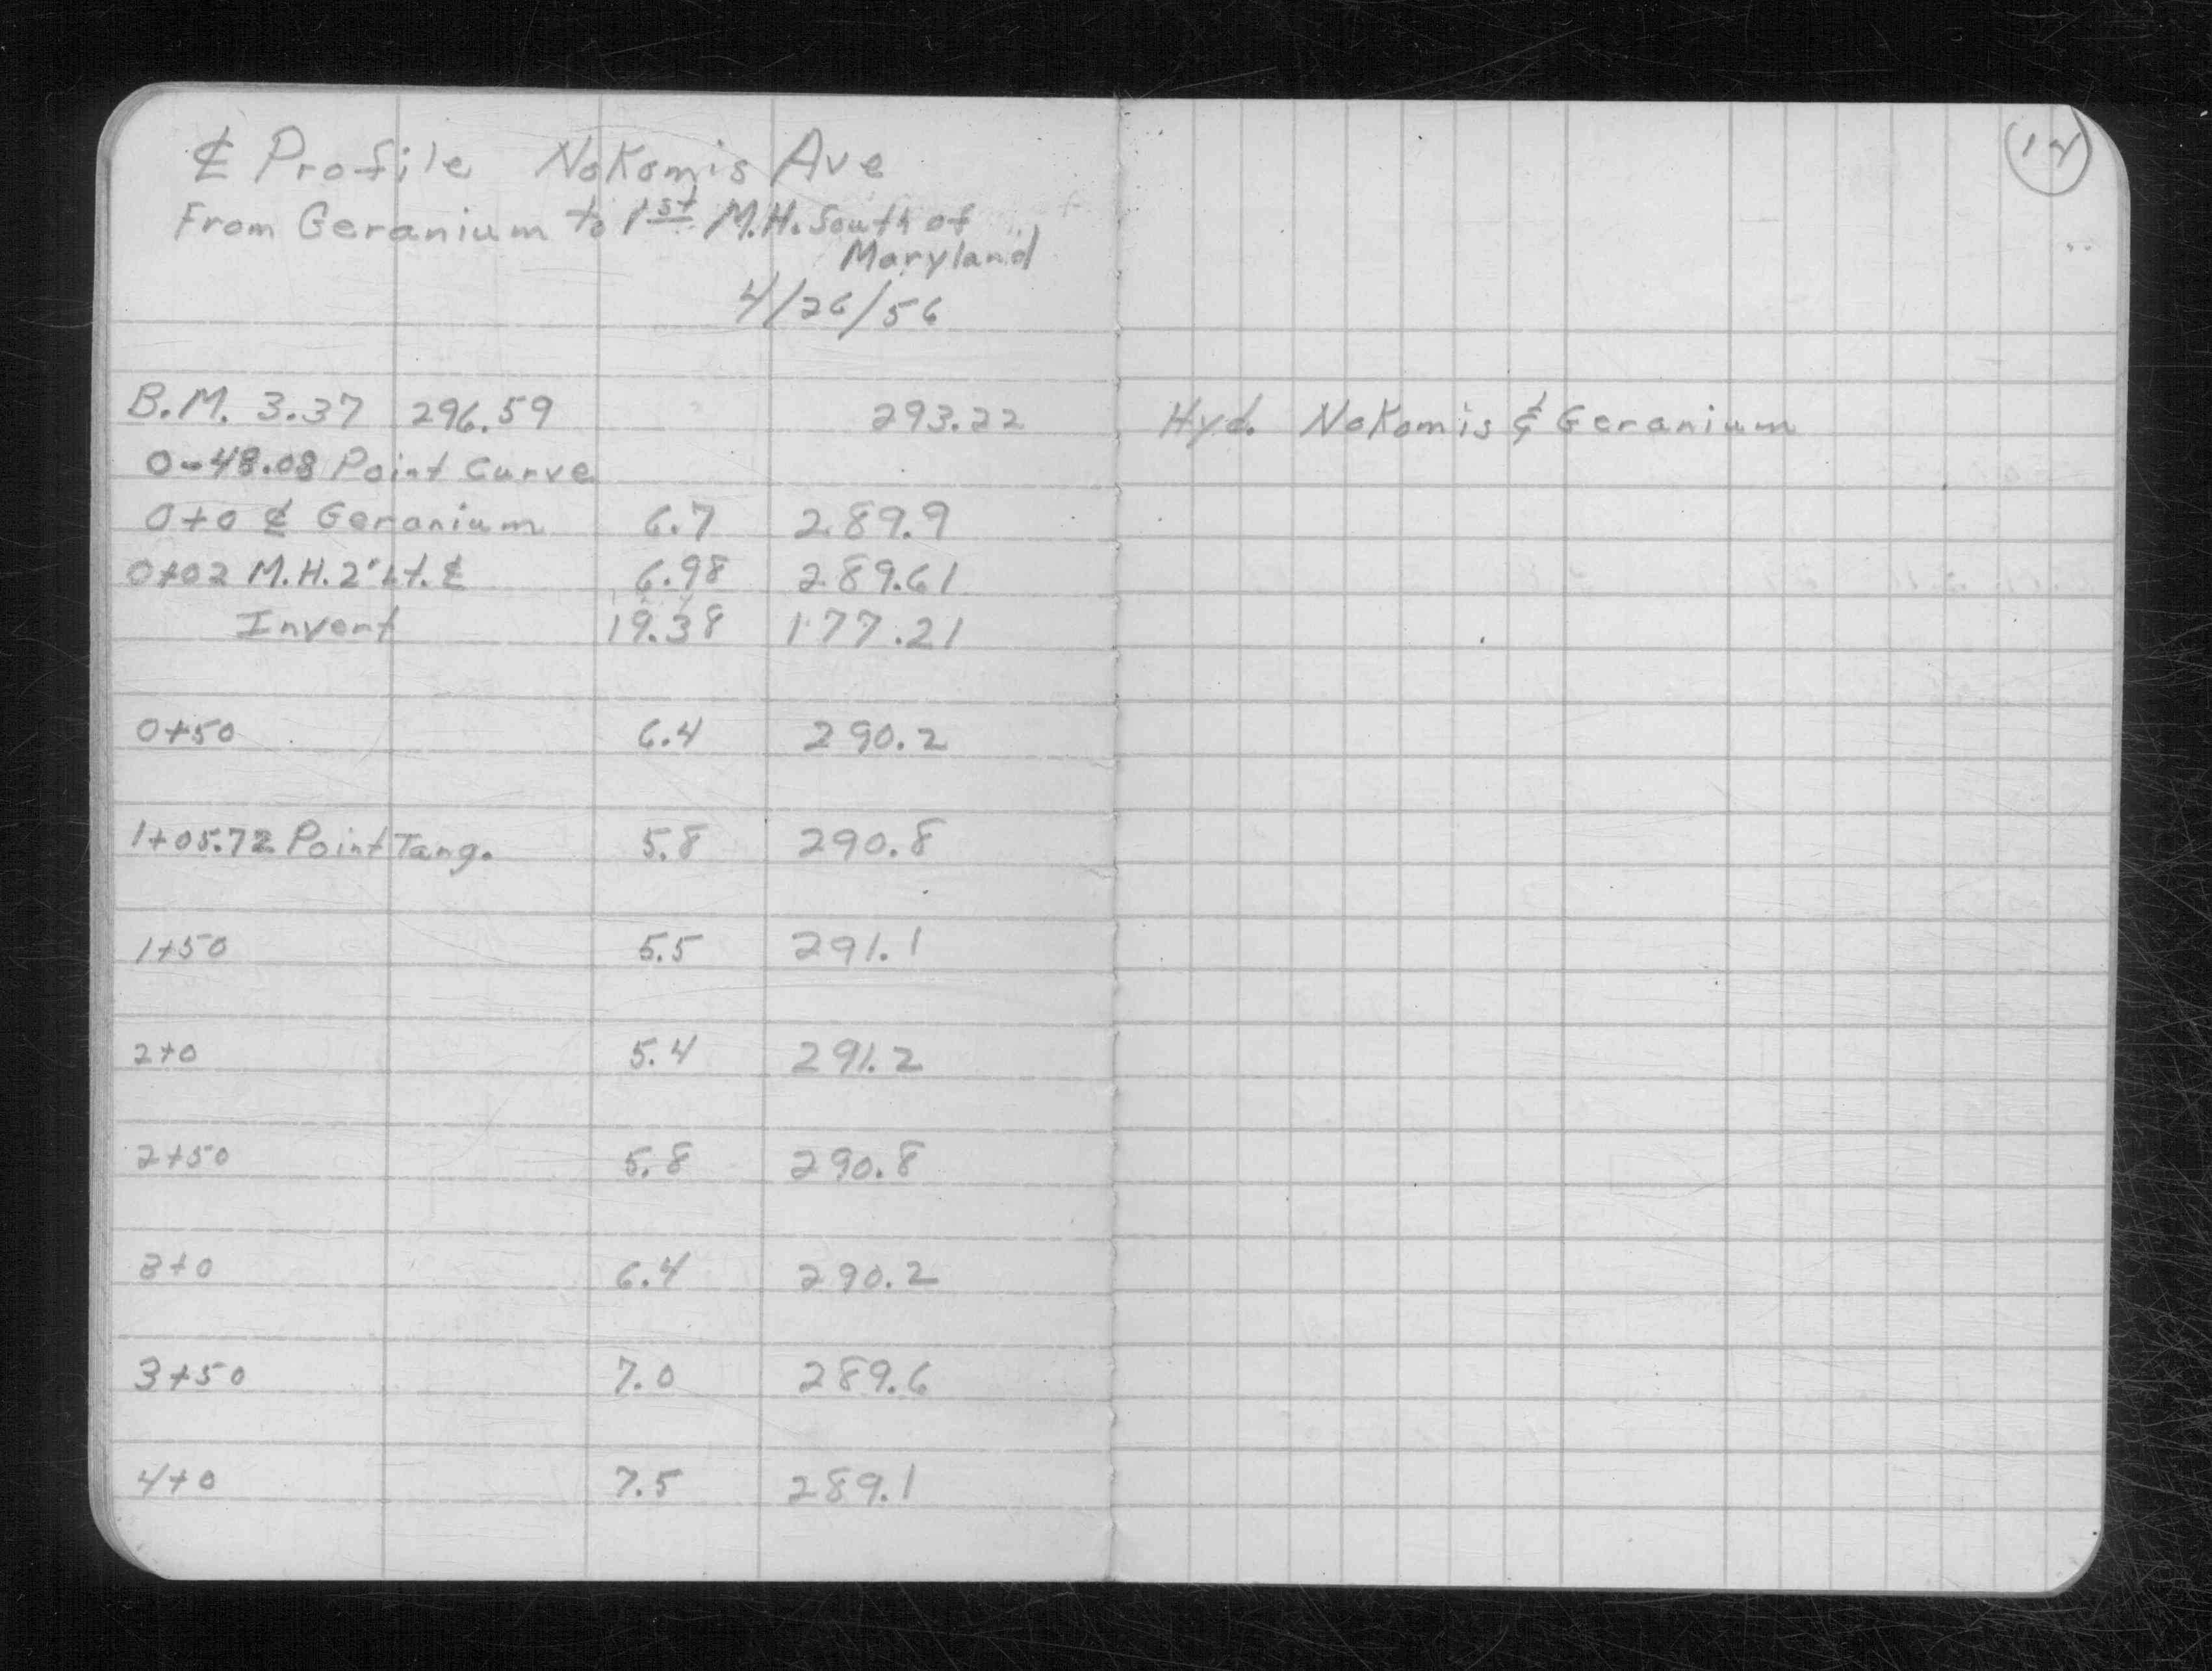 ⅊ Profile Nokomis Ave
From Geranium to 1st M.H. South of
Maryland
4/26/56
B.M. 3.37 296.59 293.22 Hyd. Nokomis & Geranium
0-48.08 Point Curve
0+0 ⅊ Geranium 6.7 289.9
0+02 M.H. 2' Lt. ⅊ 6.98 289.61
Invert 19.38 177.21
0+50 6.4 290.2
1+05.72 Point Tang. 5.8 290.8
1+50 5.5 291.1
2+0 5.4 291.2
2+50 5.8 290.8
3+0 6.4 290.2
3+50 7.0 289.6
4+0 7.5 289.1